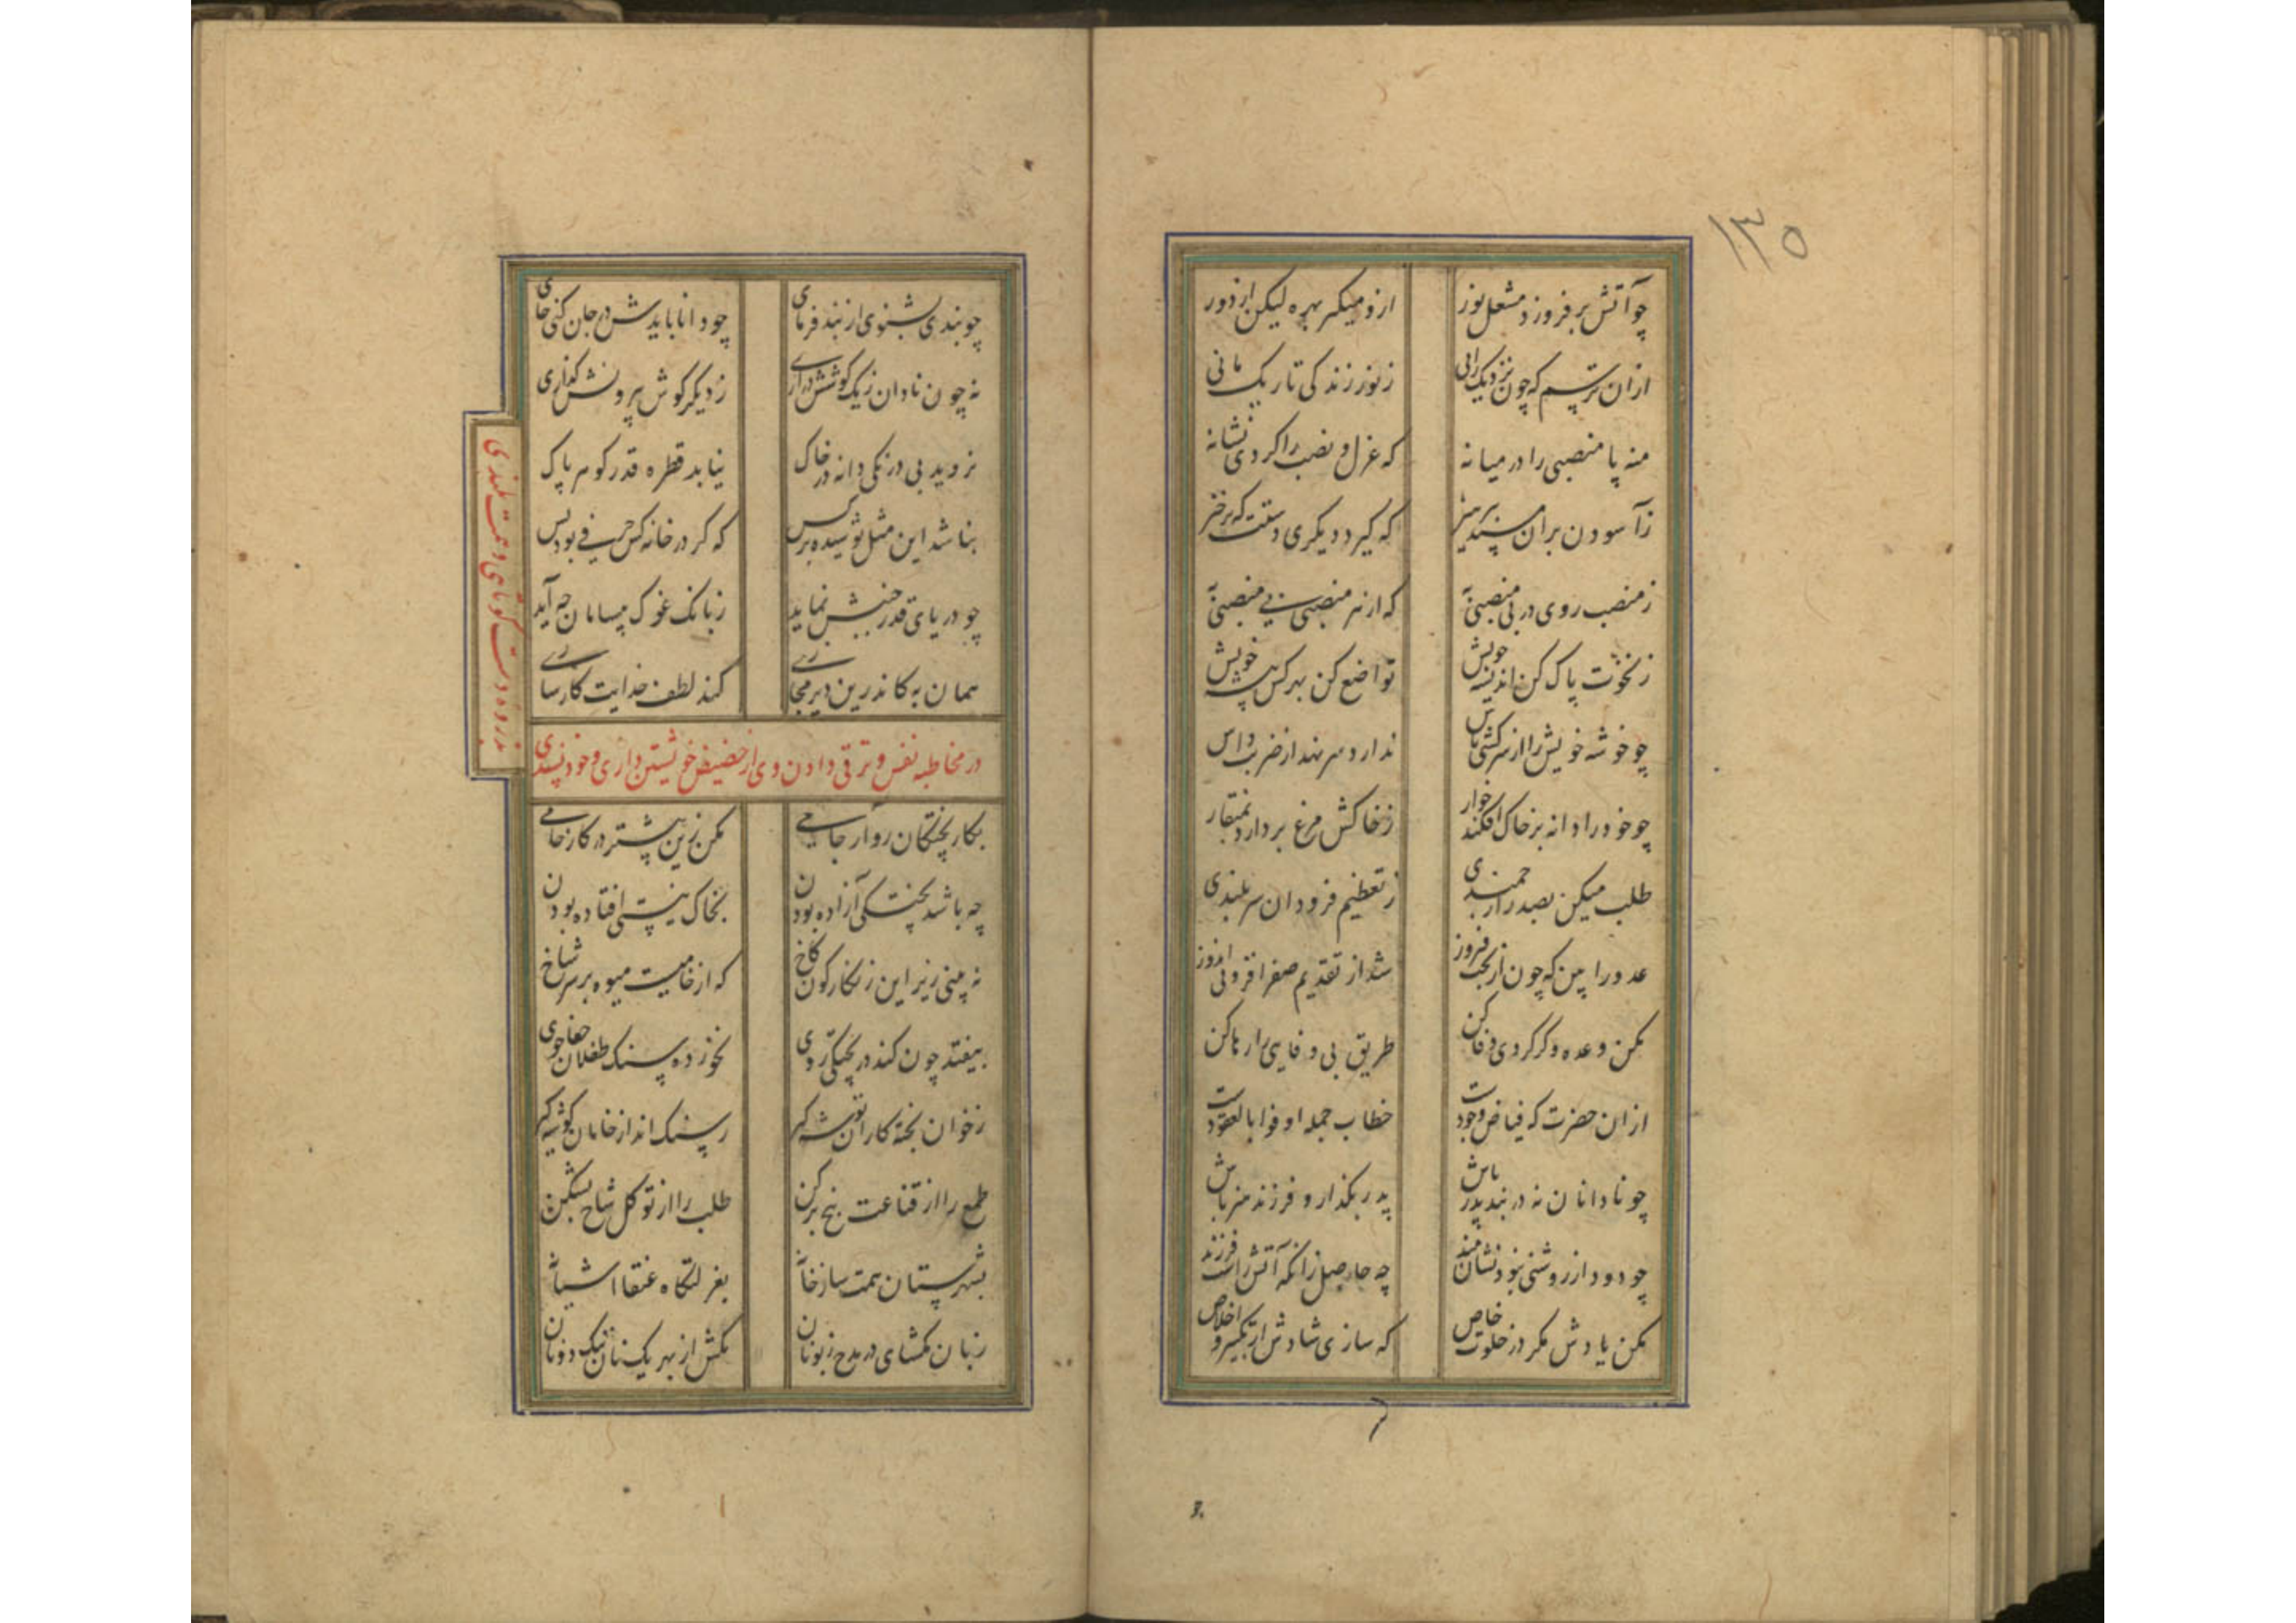 ۱۳۵
چو آتش برفروزد مشعل نور ازو میکیر بهره لیکن از دور
ازان ترسم که چون نزدیک رانی ز نور زندکی تاریک مانی
منه پا منصبی را در میانه که عزل و نصب را کردی نشانه
ز آسودن بران مسند بپرهیز که کیرد دیکری دستت که برخیز
ز منصب روی در بی منصبی نه که از هر منصبی بی منصبی به
ز نخوت پاک کن اندیشه خویش تواضع کن بهر کس پیشه خویش
چو خوشه خویش را از سرکشی پاس ندارد سر نهد از ضرب داس
چو خود را دانه بر خاک افکند خوار ز خاکش مرغ بردارد بمنقار
طلب میکن بصدر ارجمندی ز تعظیم فرودان سربلندی
عدد را بین که چون از بخت فیروز شد از تقدیم صفر افزونی اندوز
مکن وعده وکر کردی وفا کن طریق بی وفایی را رها کن
ازان حضرت که فیاض وجودست خطاب جمله اوفوا بالعقودست
چو نادانان نه در بند پدر باش پدر بکذار و فرزند هنر باش
چو دود از روشنی نبود نشان مند چه حاصل زانکه آتش راست فرزند
مکن یادش مکر در خلوت خاص که سازی شادش از تکبیر و اخلاص
چو پندی بشنوی از پند فرمای چو دانا بایدش در جان کنی جای
نه چون نادان ز یک کوشش درآری ز دیکر کوش بیرونش کذاری
نروید بی درنکی دانه در خاک نیابد قطره قدر کوهر پاک
بناشد این مثل پوشیده بر کس که کر در خانه کس حرفی بود بس
چو دریای قدر جنبش نماید ز بانک غوک بیسامان چه آید
همان به کاندرین دیر مجازی کند لطف خدایت کارسازی
در مخاطبه نفس و ترقی دادن وی از حضیض خویشتن داری و خود پسندی
بذروه دست کوتاهی و همت بلندی
بکار پختکان رو آر جامی مکن زین بیشتر در کار خامی
چه باشد پختکی آزاده بودن بخاک نیستی افتاده بودن
نه بینی زیر این زنکارکون کاخ که از خامیست میوه بر سر شاخ
بیفتد چون کند در پختکی روی نخورده سنک طفلان جفا جوی
ز خوان پخته کاران توشه کیر ز سنک انداز خامان کوشه کیر
طمع را از قناعت بیخ برکن طلب را از توکل شاخ بشکن
بشهرستان همت ساز خانه بغزلتکاه عنقا آشیانه
زبان مکشای در مدح زبونان مکش از بهر یک نان ننک دونان